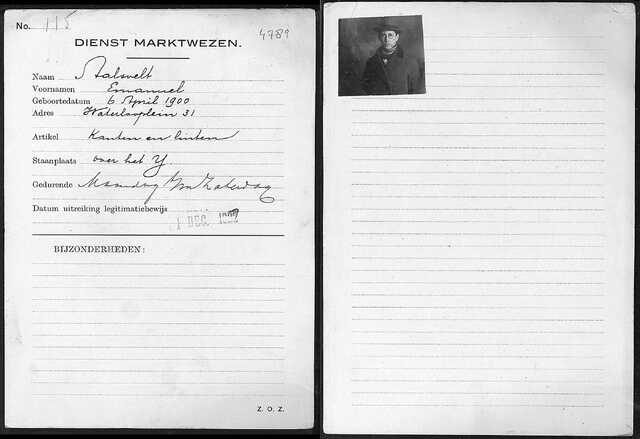 No. 115
4789
DIENST MARKTWEZEN.
Naam Aalsvelt
Voornamen Emanuel
Geboortedatum 6 April 1900
Adres Waterlooplein 31
Artikel Kanten en linten
Staanplaats over het Y.
Gedurende Maandag t/m Zaterdag
Datum uitreiking legitimatiebewijs
1 DEC.
BIJZONDERHEDEN:
Z. O. Z.